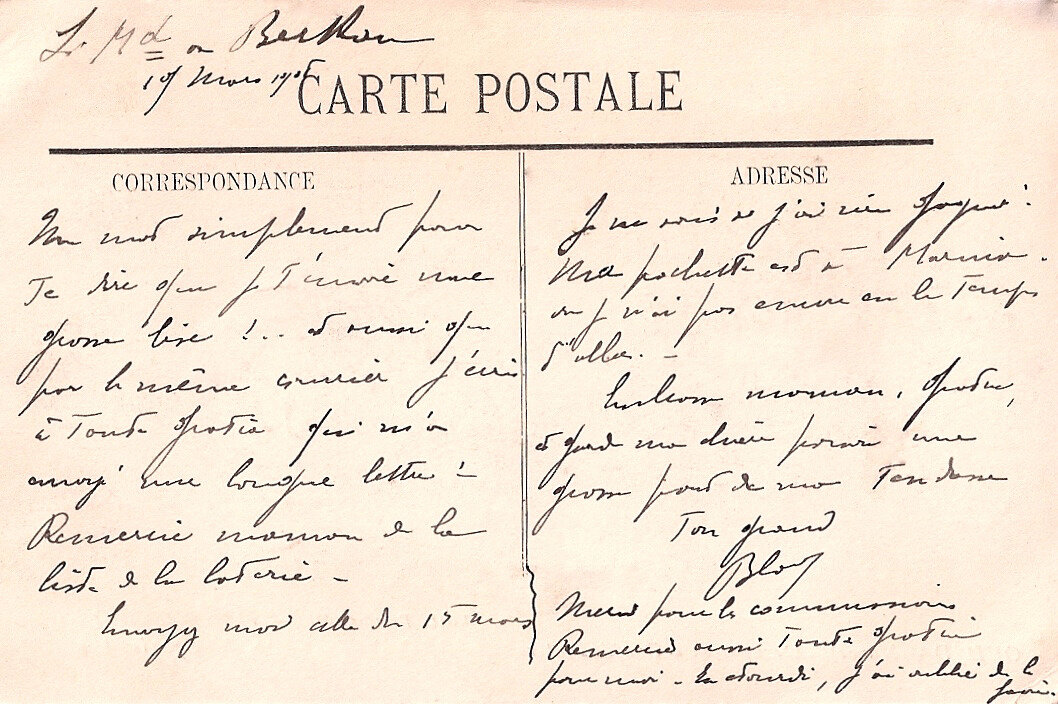 19 Mars 1906
CARTE POSTALE
CORRESPONDANCE
Un mot simplement pour
Te dire que je T'envoie une
grosse bise !.. et aussi que
par le même courrier j'écris
à Tante qui m'a
envoyé une longue lettre !
Remercie maman de la
liste de la loterie -
Envoyez moi celle du 15 mars
ADRESSE
Je ne sais si j'ai rien gagné !
Ma pochette est à
ou je n'ai pas encore eu le Temps
d'aller. -
Embrasse maman,
et garde ma chérie une
grosse part de ma Tendresse
Ton grand
Merci pour les commissions
Remercie aussi Tante
pour moi - En étourdi, j'ai oublié de le
faire.